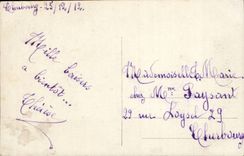 Cherbourg - 25/12/12.
Mille baisers
à bientôt...
Mademoiselle Marie
chez Mme Paysant
29 rue Loysel 29
Cherbourg